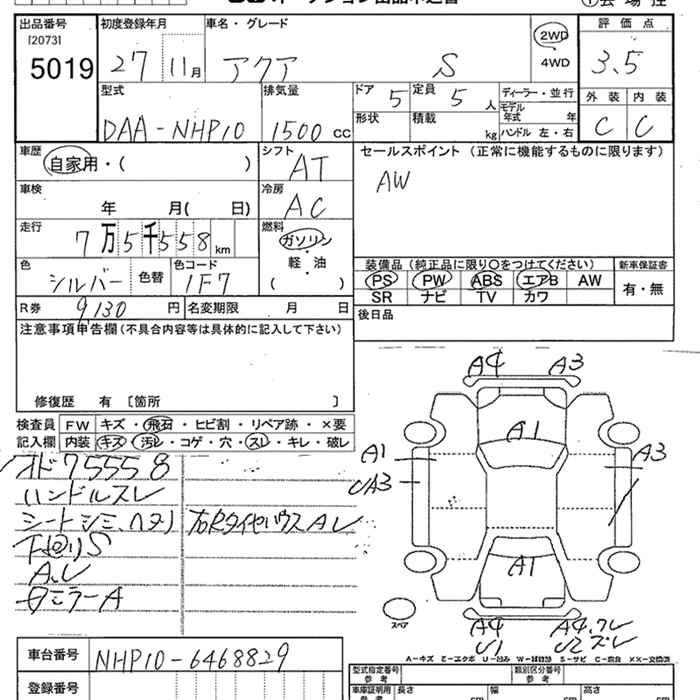 出品番号 初度登録年月 車名・グレード 評価点
[2073]
5019 27 11月 アクア S 2WD 4WD 3.5
外装 内装
C C
型式 排気量 ドア 5 定員 5人 ディーラー・並行
モデル年式 年
DAA-NHP10 1500cc 形状 積載 kg ハンドル 左・右
車歴 自家用・( ) シフト AT セールスポイント(正常に機能するものに限ります)
AW
車検 年 月( 日) 冷房 AC
走行 7万5千558km 燃料 ガソリン・軽油・( )
色 シルバー 色替 色コード 1F7
装備品(純正品に限り○をつけてください) 新車保証書
PS PW ABS エアB AW 有・無
SR ナビ TV カワ
R券 9,130円 名変期限 月 日 後日品
注意事項申告欄(不具合内容等は具体的に記入して下さい)
修復歴 有 [箇所 ]
検査員記入欄 FW キズ・飛石・ヒビ割・リペア跡・×要
内装 キズ・汚レ・コゲ・穴・スレ・キレ・破レ
オド75558
ハンドルスレ
シートシミ、ヘタリ
下回りS
A.U
ミラーA
A4 A3
A1
A1 A3
UA3
A1
A4 U1
スペア
A-キズ E-エクボ U-凹み W-補修跡 S-サビ C-腐食 XX-交換済
車台番号 NHP10-6468829
登録番号
型式指定番号 参考 類別区分番号 参考
車庫証明用 参考 長さ cm 幅 cm 高さ cm